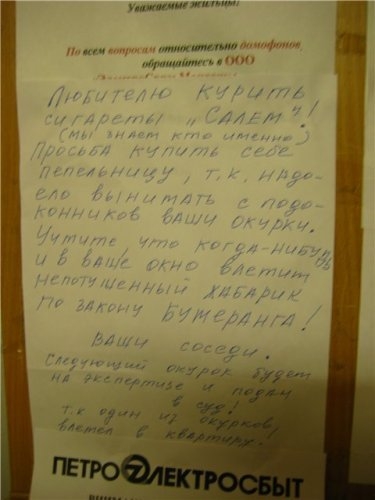 Уважаемые жильцы!
По всем вопросам относительно домофонов,
обращайтесь в ООО
Любителю курить
сигареты „Салем"!
(мы знаем кто именно)
Просьба купить себе
пепельницу, т.к. надо-
ело вынимать с подо-
конников ваши окурки.
Учтите, что когда-нибудь
и в ваше окно влетит
непотушенный хабарик
по закону бумеранга!
Ваши соседи.
Следующий окурок будет
на экспертизе и подам
в суд!
т.к один из окурков
влетел в квартиру!
ПЕТРОЭЛЕКТРОСБЫТ